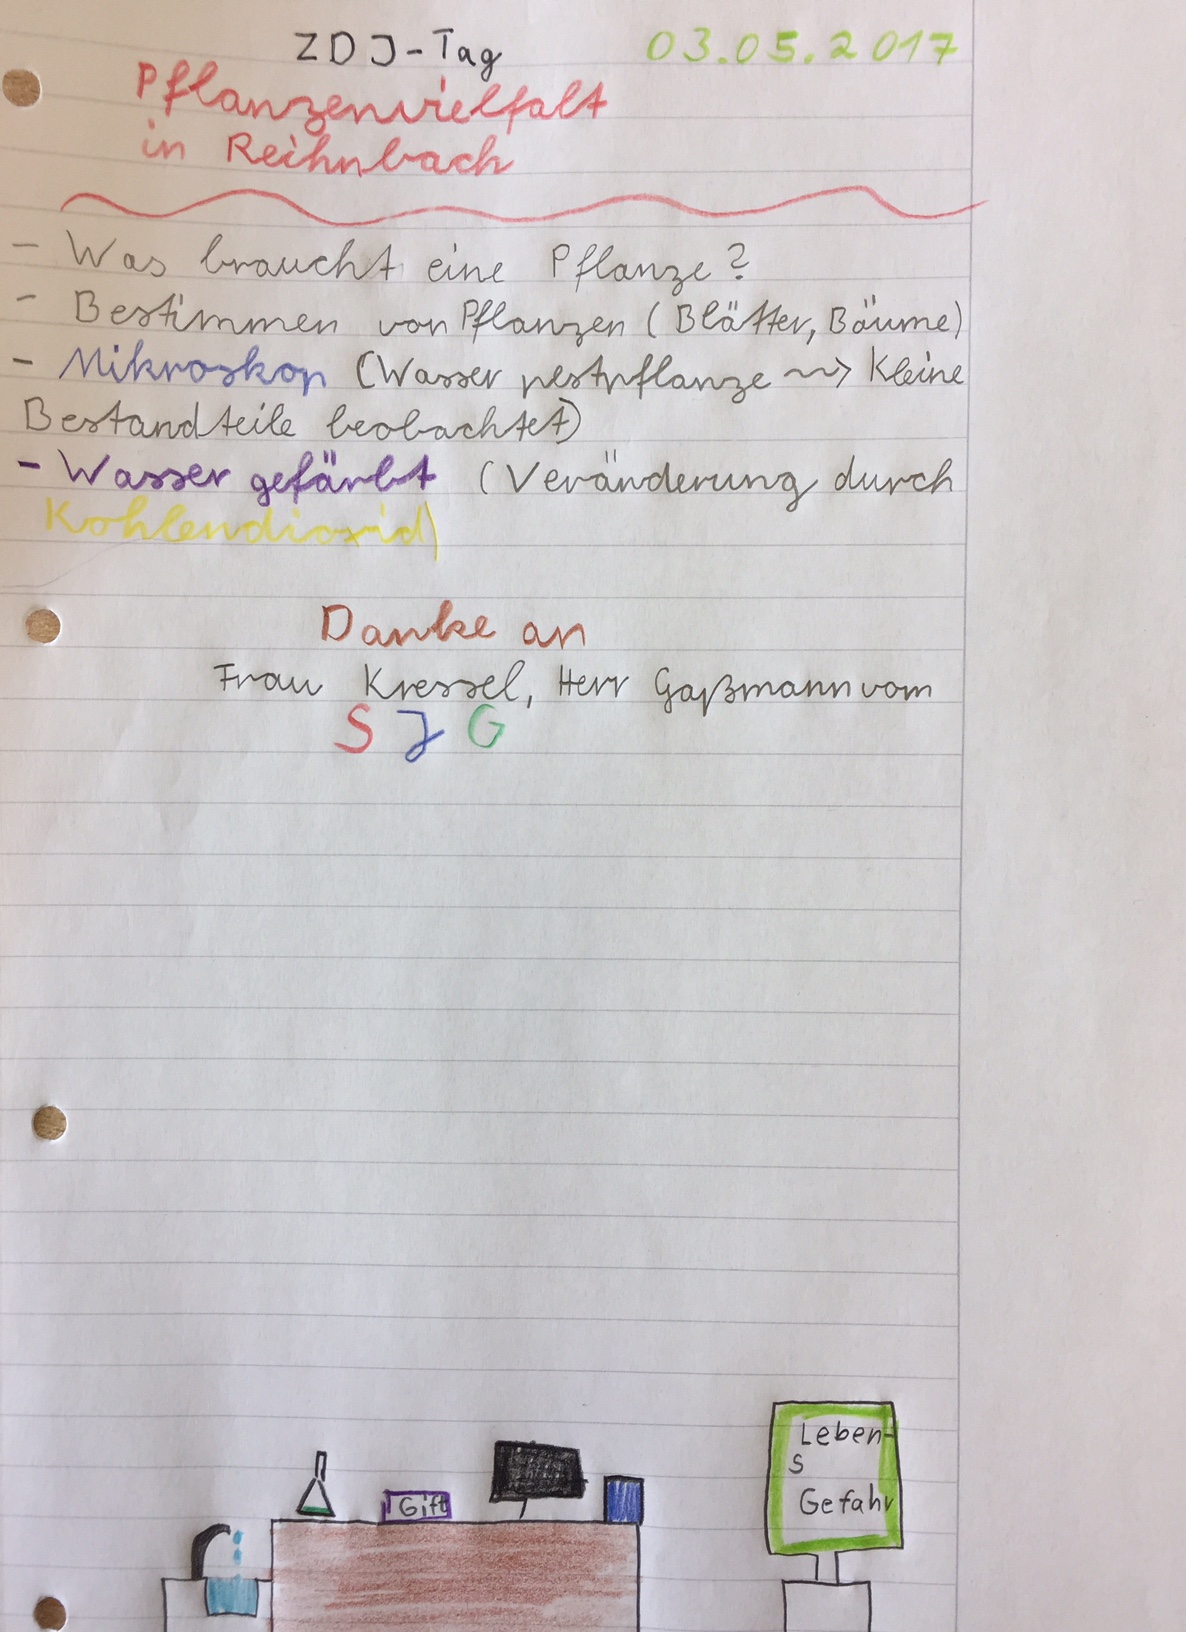 ZDJ-Tag 03.05.2017
Pflanzenvielfalt
in Reihnbach
- Was braucht eine Pflanze?
- Bestimmen von Pflanzen (Blätter, Bäume)
- Mikroskop (Wasser pestpflanze ~~> Kleine
Bestandteile beobachtet)
- Wasser gefärbt (Veränderung durch
Kohlendioxid)
Danke an
Frau Kressel, Herr Gaßmann vom
SJG
Gift
Leben-
s
Gefahr